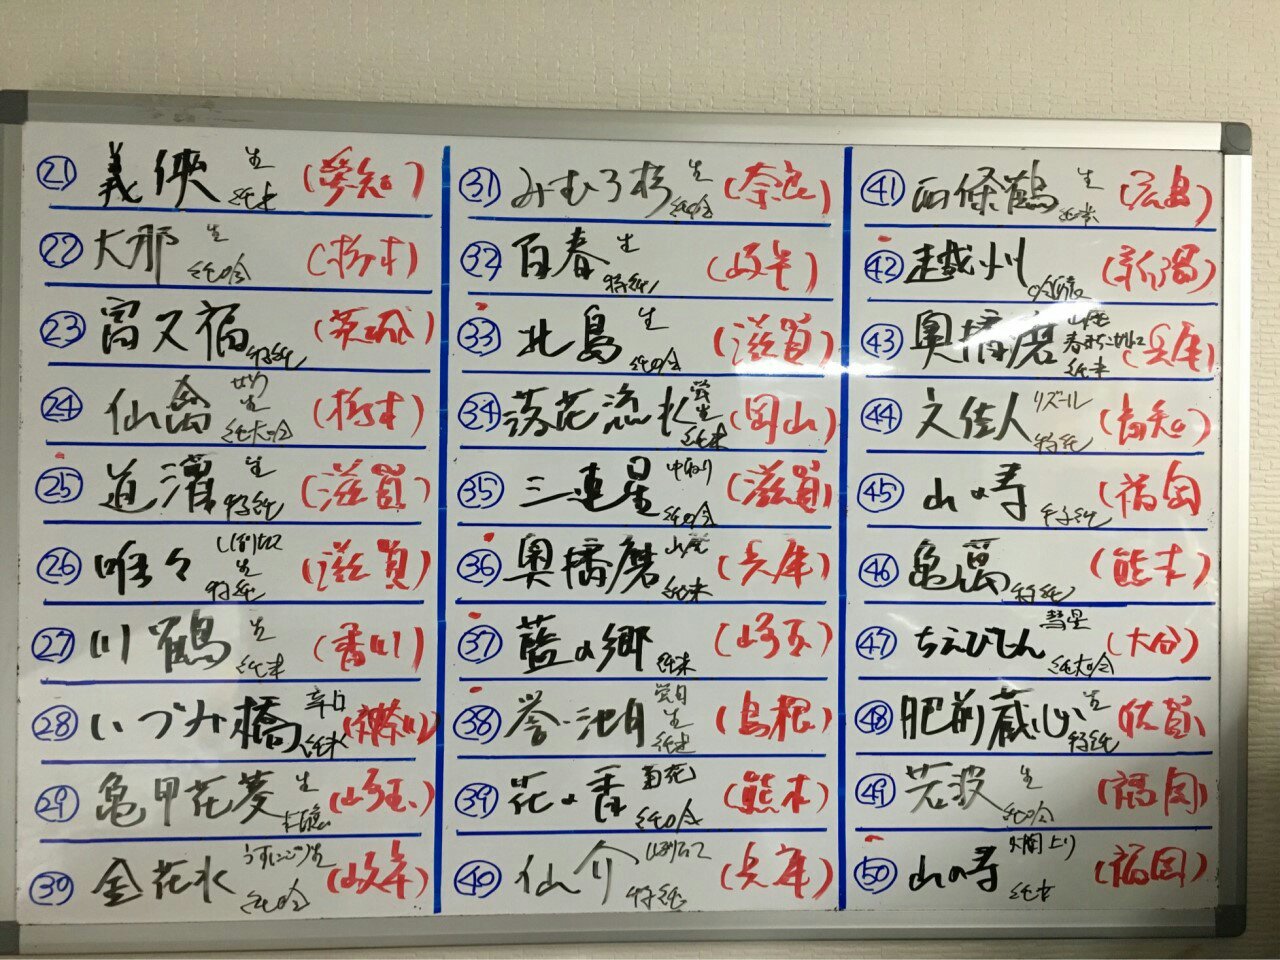 ㉑ 義侠 生 純米 (愛知)
㉒ 大那 生 純吟 (栃木)
㉓ 富久福 特純 (茨城)
㉔ 仙禽 生 純大吟 (栃木)
㉕ 道灌 生 特純 (滋賀)
㉖ 唯々 しぼりたて 生 特純 (滋賀)
㉗ 川鶴 生 純米 (香川)
㉘ いづみ橋 辛口 純米 (神奈川)
㉙ 亀甲花菱 生 (埼玉)
㉚ 金花水 うすにごり生 純吟 (岐阜)
㉛ みむろ杉 生 純吟 (奈良)
㉜ 百春 生 特純 (岐阜)
㉝ 北島 生 純吟 (滋賀)
㉞ 落花流水 生 純米 (岡山)
㉟ 三連星 中取り 純吟 (滋賀)
㊱ 奥播磨 山廃 純米 (兵庫)
㊲ 藍の郷 純米 (埼玉)
㊳ 誉池月 生 純米 (島根)
㊴ 花の香 菊花 純吟 (熊本)
㊵ 仙介 しぼりたて 特純 (兵庫)
㊶ 西條鶴 生 純米 (広島)
㊷ 越州 (新潟)
㊸ 奥播磨 山廃 純米 (兵庫)
㊹ 文佳人 リズール 特純 (高知)
㊺ 山の寿 特純 (福岡)
㊻ 亀萬 特純 (熊本)
㊼ ちえびじん 彗星 純大吟 (大分)
㊽ 肥前蔵心 生 特純 (佐賀)
㊾ 若波 生 純吟 (福岡)
㊿ 山の寿 燗上り 純米 (福岡)